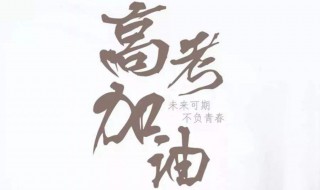 高考
加油
未来可期
不负青春